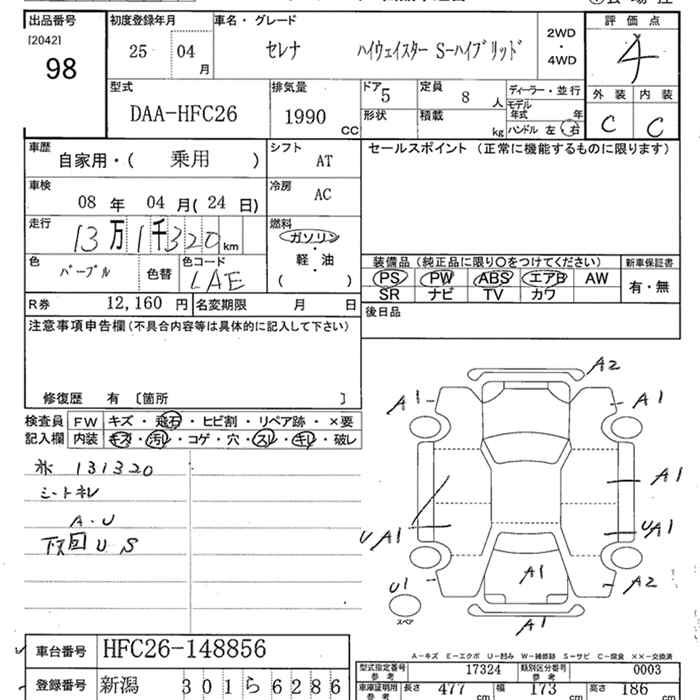 出品番号 初度登録年月 車名・グレード 評価点
[2042] 25 04 月 セレナ ハイウェイスター S-ハイブリッド 2WD・4WD 4
98
型式 排気量 ドア 5 定員 8 人 ディーラー・並行 外装 内装
DAA-HFC26 1990 CC 形状 積載 kg モデル年式 年 C C
ハンドル 左 右
車歴 自家用・( 乗用 ) シフト AT セールスポイント (正常に機能するものに限ります)
車検 08 年 04 月 ( 24 日) 冷房 AC
走行 13 万 1 千 320 km 燃料 ガソリン
軽・油
( )
色 パープル 色替 色コード LAE
装備品 (純正品に限り○をつけてください) 新車保証書
PS PW ABS エアB AW 有・無
SR ナビ TV カワ
R券 12,160 円 名変期限 月 日 後日品
注意事項申告欄 (不具合内容等は具体的に記入して下さい)
修復歴 有 〔箇所 〕
検査員 FW キズ・飛石・ヒビ割・リペア跡・×要
記入欄 内装 キズ・汚レ・コゲ・穴・スレ・キレ・破レ
131320
シートキレ
A・U
下回 U S
A2
A1 A1
A1
UA1 UA1
A1
U1 A2
スペア
A1
A-キズ E-エクボ U-凹み W-補修跡 S-サビ C-腐食 ××-交換済
車台番号 HFC26-148856
型式指定番号 参考 17324 類別区分番号 参考 0003
登録番号 新潟 301 ら 6286
車庫証明用 参考 長さ 477 cm 幅 173 cm 高さ 186 cm